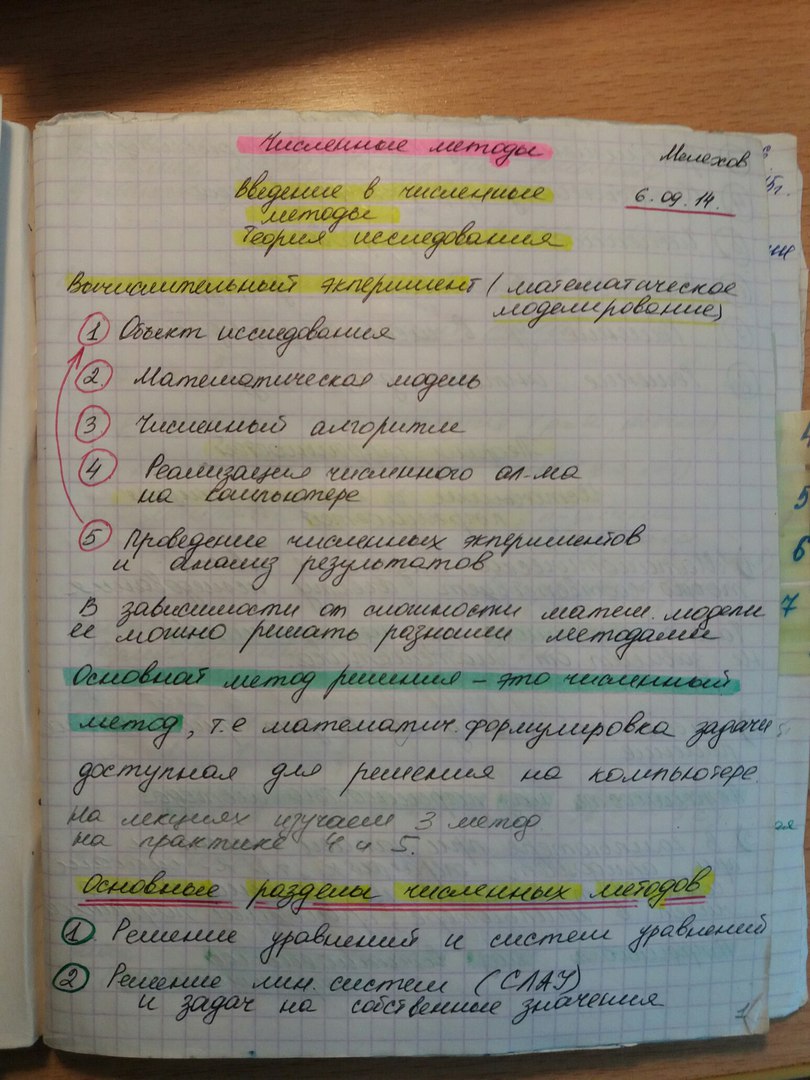 Численные методы
Мелехов
Введение в численные
6.09.14.
методы
Теория исследования
Вычислительный экперимент (математическое
моделирование)
1 Объект исследования
2 Математическая модель
3 Численный алгоритм
4 Реализация численного ал-ма
на компьютере
5 Проведение численных экпериментов
и анализ результатов
В зависимости от сложности матем. модели
её можно решать разными методами
Основной метод решения – это численный
метод, т.е математич. формулировка задачи
доступная для решения на компьютере.
На лекциях изучаем 3 метод
на практике 4 и 5.
Основные разделы численных методов
1. Решение уравнений и систем уравнений
2 Решение лин. систем (СЛАУ)
и задач на собственные значения
1
5
6
7